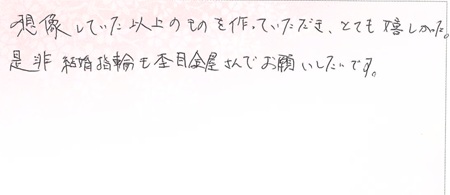 想像していた以上のものを作っていただき、とても嬉しかった。
是非結婚指輪も杢目金屋さんでお願いしたいです。